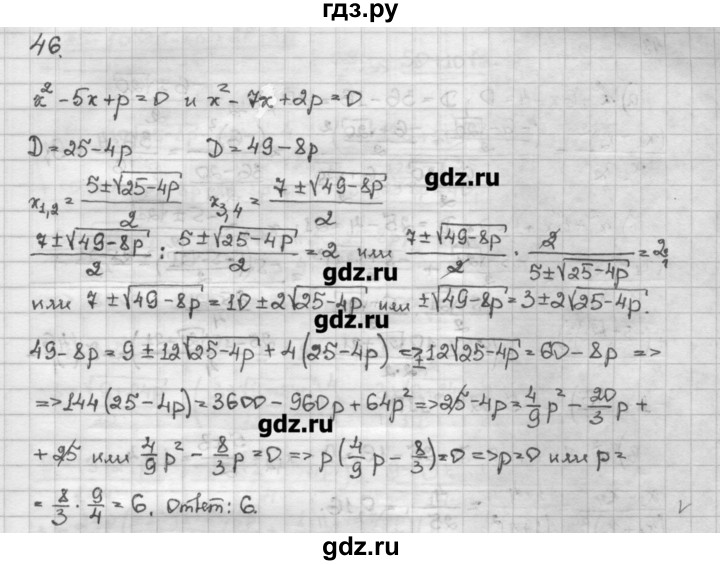 гдз.ру
46.
x² - 5x + p = 0 и x² - 7x + 2p = 0
D = 25 - 4p D = 49 - 8p
gdz.ru
x₁,₂ = (5 ± √(25 - 4p))/2 x₃,₄ = (7 ± √(49 - 8p))/2
(7 ± √(49 - 8p))/2 : (5 ± √(25 - 4p))/2 = 2 или (7 ± √(49 - 8p))/2 · 2/(5 ± √(25 - 4p)) = 2;
gdz.ru
или 7 ± √(49 - 8p) = 10 ± 2√(25 - 4p) или ±√(49 - 8p) = 3 ± 2√(25 - 4p).
gdz.ru
49 - 8p = 9 ± 12√(25 - 4p) + 4(25 - 4p) => ∓12√(25 - 4p) = 60 - 8p =>
=> 144(25 - 4p) = 3600 - 960p + 64p² => 25 - 4p = 4/9 p² - 20/3 p +
gdz.ru
+ 25 или 4/9 p² - 8/3 p = 0 => p(4/9 p - 8/3) = 0 => p = 0 или p =
= 8/3 · 9/4 = 6. Ответ: 6.
gdz.ru